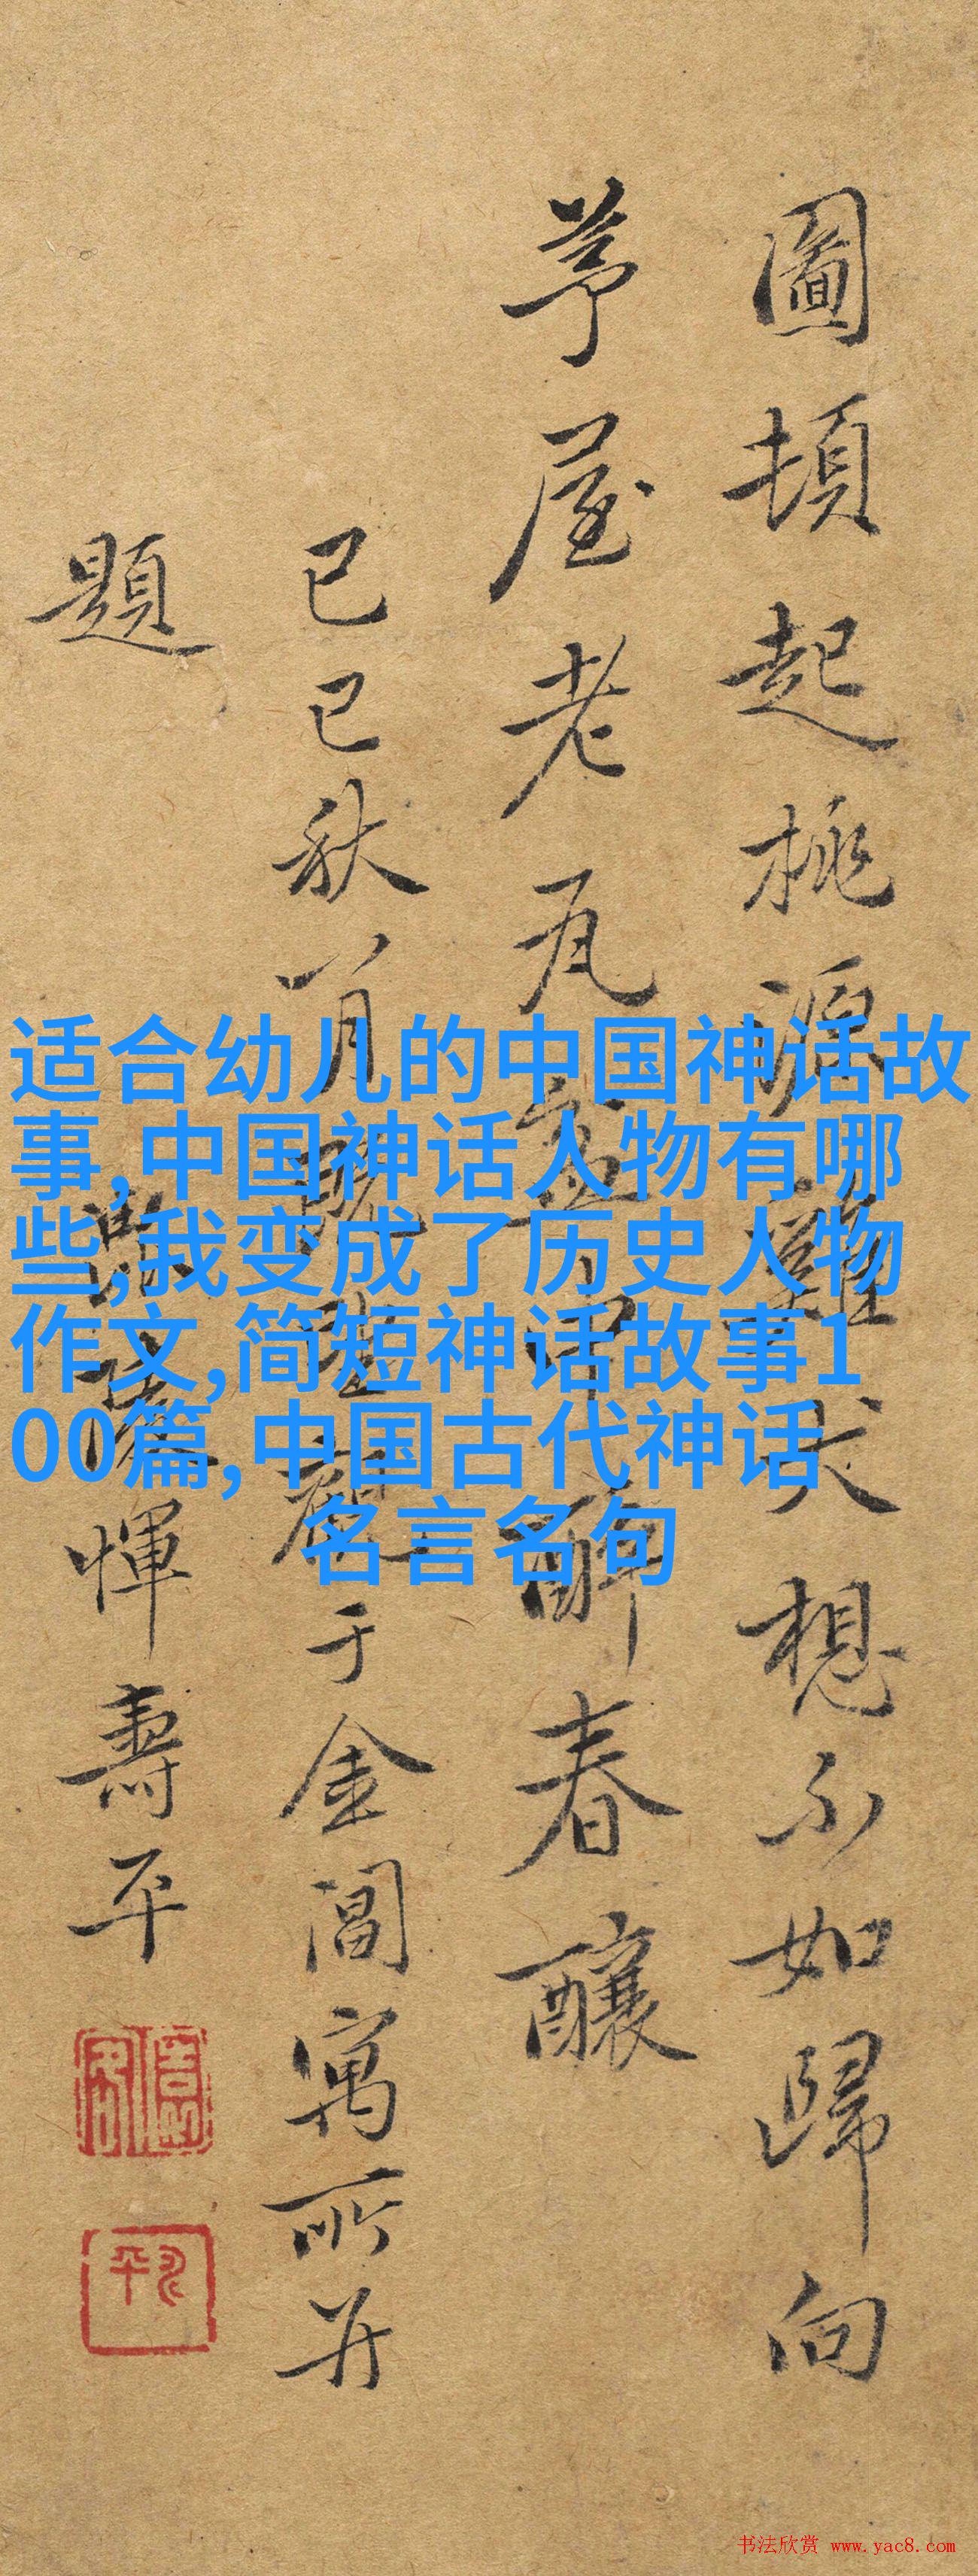 圖頓起桃源雞犬想不如歸向
茅屋老瓦盆中醉春釀
己巳秋八月觀于金閶寓所并
題
惲壽平
适合幼儿的中国神话故
事,中国神话人物有哪
些,我变成了历史人物
作文,简短神话故事1
00篇,中国古代神话
名言名句
书法欣赏 www.yac8.com